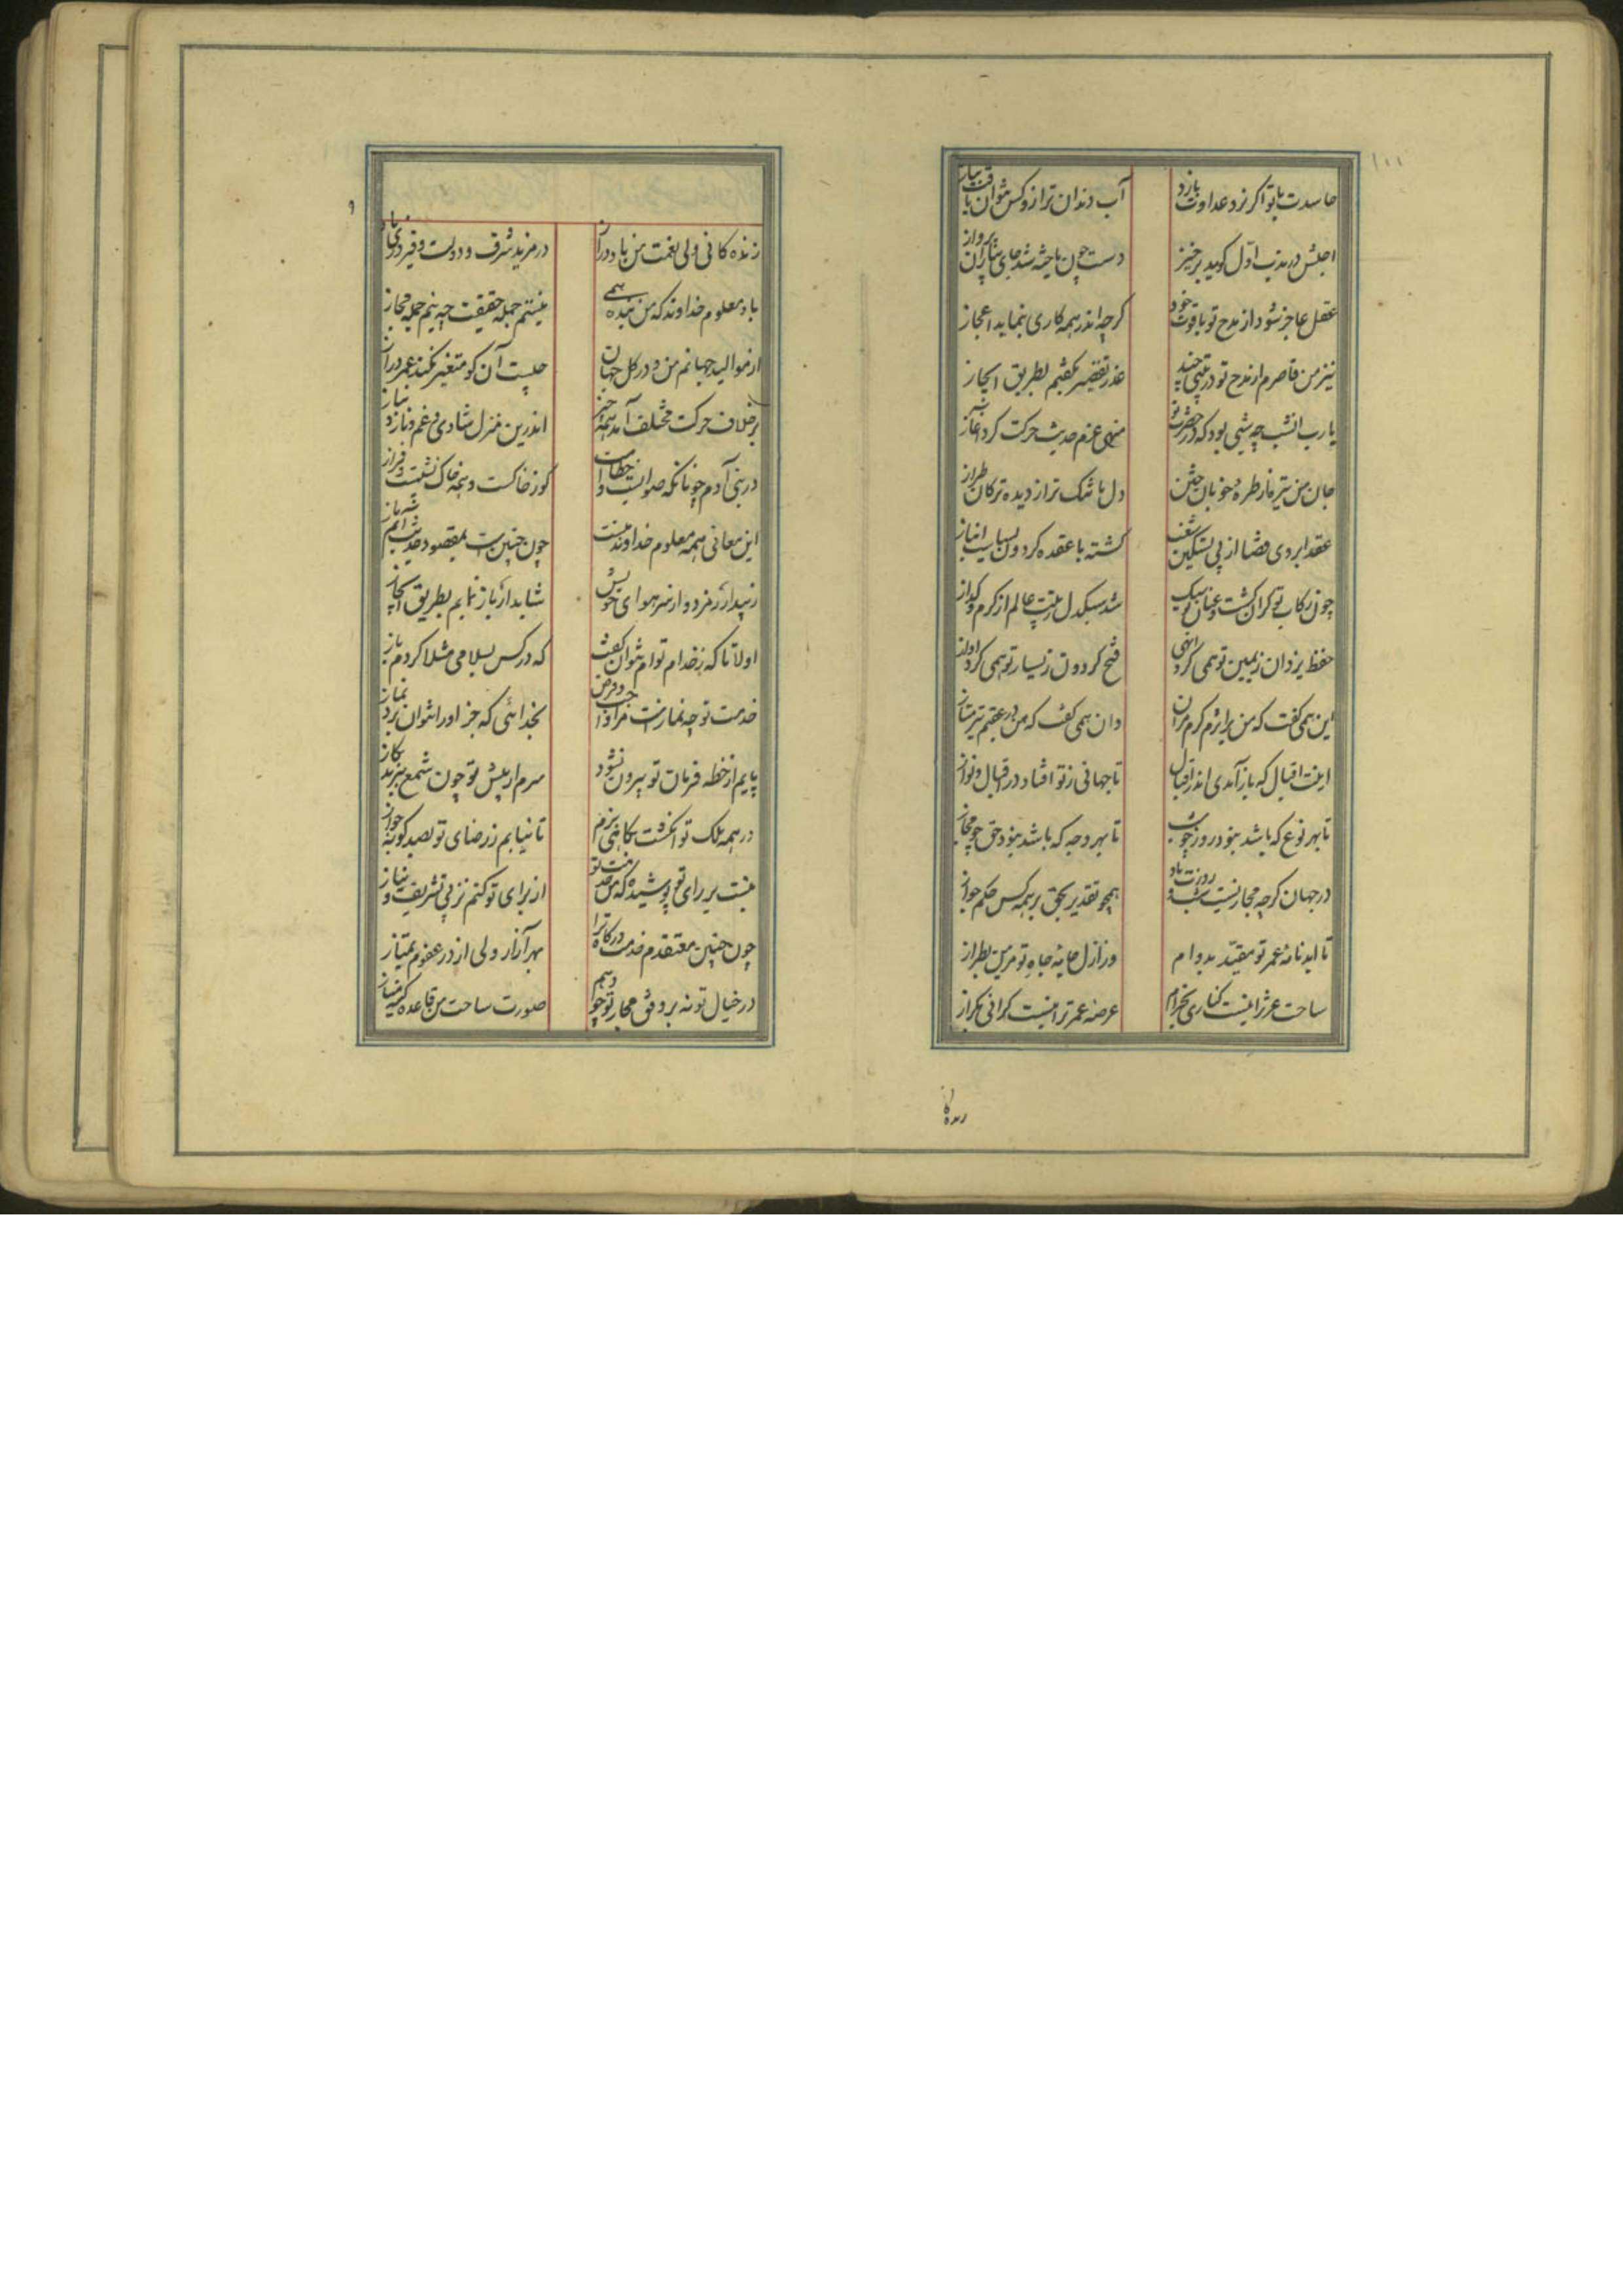 حاسدت با تو اگر نرد عداوت بازد
آب دندان تر ازو کس نتوان یافت بیار
اجلش در ندب اول گوید برخیز
دست چون باخته شد جای بپرداز
عقل عاجز شود از مدح تو با قوت خود
گرچه اندر همه کاری بنماید اعجاز
نیز من قاصرم از مدح تو در بیتی چند
عذر تقصیر بگفتم بطریق ایجاز
یارب انشب چه شبی بود که در حضرت تو
منهی عزم حدیث حرکت کرد آغاز
جان من تیره تر از طره خوبان ختن
دل من تنک تر از دیده ترکان طراز
عقد ابروی قضا از پی تسکین شغب
گشته با عقده گردون بسیاست انباز
چون رکاب تو گران گشت و عنان تو سبک
شد سبکدل ز تپ عالم از کرم و گداز
حفظ یزدان ز یمین تو همی کرد انهی
فتح گردون ز یسار تو همی کرد آواز
این همی گفت که من بر اثرم گرم بران
وان همی گفت که من در عقبم تیز بتاز
اینت اقبال که باز آمدی اندر اقبال
تا جهانی ز تو افتاد در اقبال و نواز
تا بهر نوع که باشد نبود روز چو شب
تا بهر وجه که باشد نبود حق چو مجاز
در جهان گرچه مجاز نیست شب و روزت باد
همچو تقدیر بحق بر همه کس حکم جواز
تا ابد نامه عمر تو مقید بدوام
وز ازل جامه جاه تو مزین بطراز
ساحت عز ترا نیست کناری بخرام
عرصه عمر ترا نیست کرانی بگراز
زنده کانی ولی نعمت من باد دراز
در مزید شرف و دولت و فیروزی
باد معلوم خداوند که من بنده همی
نیستم جمله حقیقت چه نیم جمله مجاز
از موالید جهانم من و در کل جهان
چیست آن کو متغیر نکند عمر دراز
بر خلاف حرکت مختلف آمد همه چیز
اندرین منزل شادی و غم و ناز و نیاز
در بنی آدم چونانکه صوابست و خطاست
کوز خاکست و بنه خاک نشیبت و فراز
این معانی همه معلوم خداوند منست
چون چنین ست بمقصود حدیث آیم باز
شاید ار باز نمایم بطریق ایجاز
اولا تا که ز خدام توام نتوان گفت
که در کس بسلامی مثلا کردم باز
خدمت تو چو نمازست مرا واجب و فرض
بخدائی که جز او را نتوان برد نماز
پایم از خطه فرمان تو بیرون نشود
سرم از پیش تو چون شمع ببرند بگاز
در همه ملک تو انگشت بکاهی نزنم
تا نیابم ز رضای تو بصد گونه جواز
نیست بر رای تو پوشیده که من خدمت تو
از برای تو کنم نز پی تشریف و نیاز
چون چنین معتقدم خدمت درگاه ترا
بهر آزار ولی از در عفوم متیاز
در خیال تو نه بر وفق مجاز تو چو وهم
صورت ساحت من قاعده کینه مساز
زندکانی